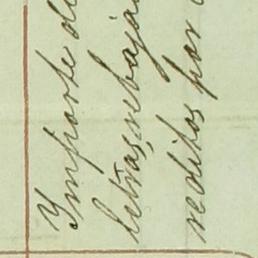 Ymporte de
letras, rebaja
reditos por